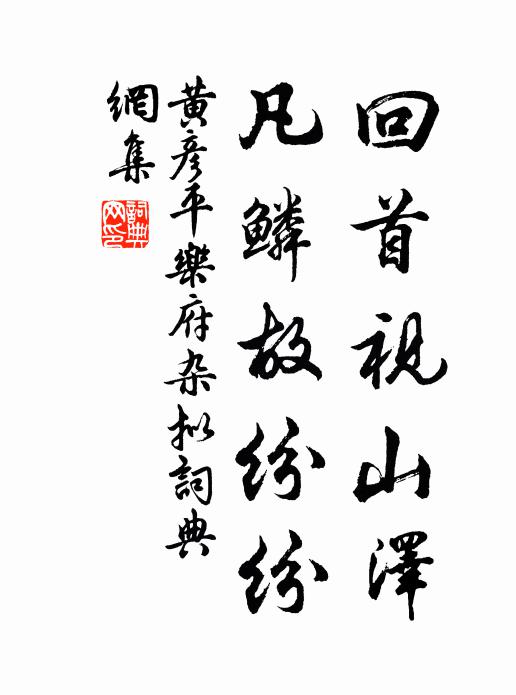 回首視山澤
凡鱗故紛紛
黃彥平樂府杂拟詞典
網集
詞典
网印